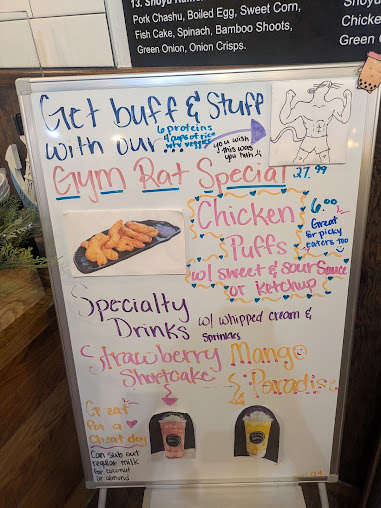 13. Shoyu
Pork Chashu, Boiled Egg, Sweet Corn,
Fish Cake, Spinach, Bamboo Shoots,
Green Onion, Onion Crisps.
Chicke
Green
Get buff & Stuff
with our...
6 proteins
you wish
this was
you tuh
Gym Rat Special 27.99
Chicken
Puffs
6.00
Great
for picky
eaters too
w/ sweet & sour Sauce
or ketchup
Specialty
Drinks w/ whipped cream &
Sprinkles
Strawberry
Shortcake
Mango
& Paradise
Great
for a
cheat day
Can sub out
regular milk
for coconut
or almond